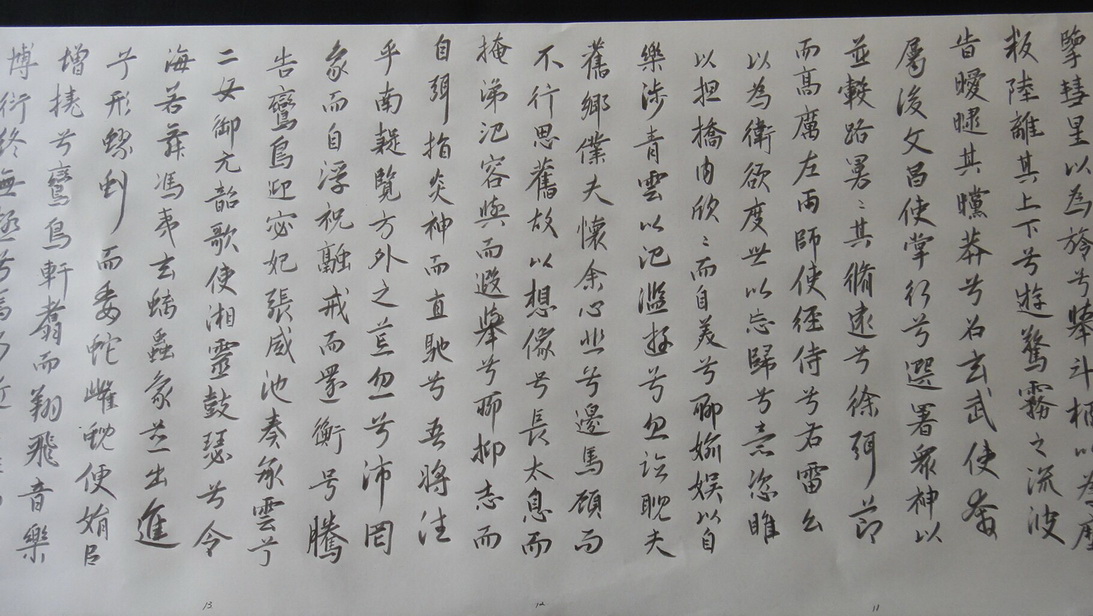 擥彗星以為旍兮舉斗柄以為麾
叛陸離其上下兮遊驚霧之流波
旹曖曃其曭莽兮召玄武使奔
屬後文昌使掌行兮選署眾神以
並轂路曼〻其脩遠兮徐弭節
而高厲左雨師使徑侍兮右雷公
以為衛欲度世以忘歸兮意恣睢
以担橋內欣〻而自美兮聊媮娛以自
樂涉青雲以汜濫游兮忽臨睨夫
舊鄉僕夫懷余心悲兮邊馬顧而
不行思舊故以想像兮長太息而
掩涕氾容與而遐舉兮聊抑志而
自弭指炎神而直馳兮吾將往
乎南疑覽方外之荒忽兮沛罔
象而自浮祝融戒而還衡兮騰
告鸞鳥迎宓妃張咸池奏承雲兮
二女御九韶歌使湘靈鼓瑟兮令
海若舞馮夷玄螭蟲象並出進
兮形蟉虯而委蛇雌蜺便娟㠯
增撓兮鸞鳥軒翥而翔飛音樂
博衍終無極兮焉乃
11
12
13